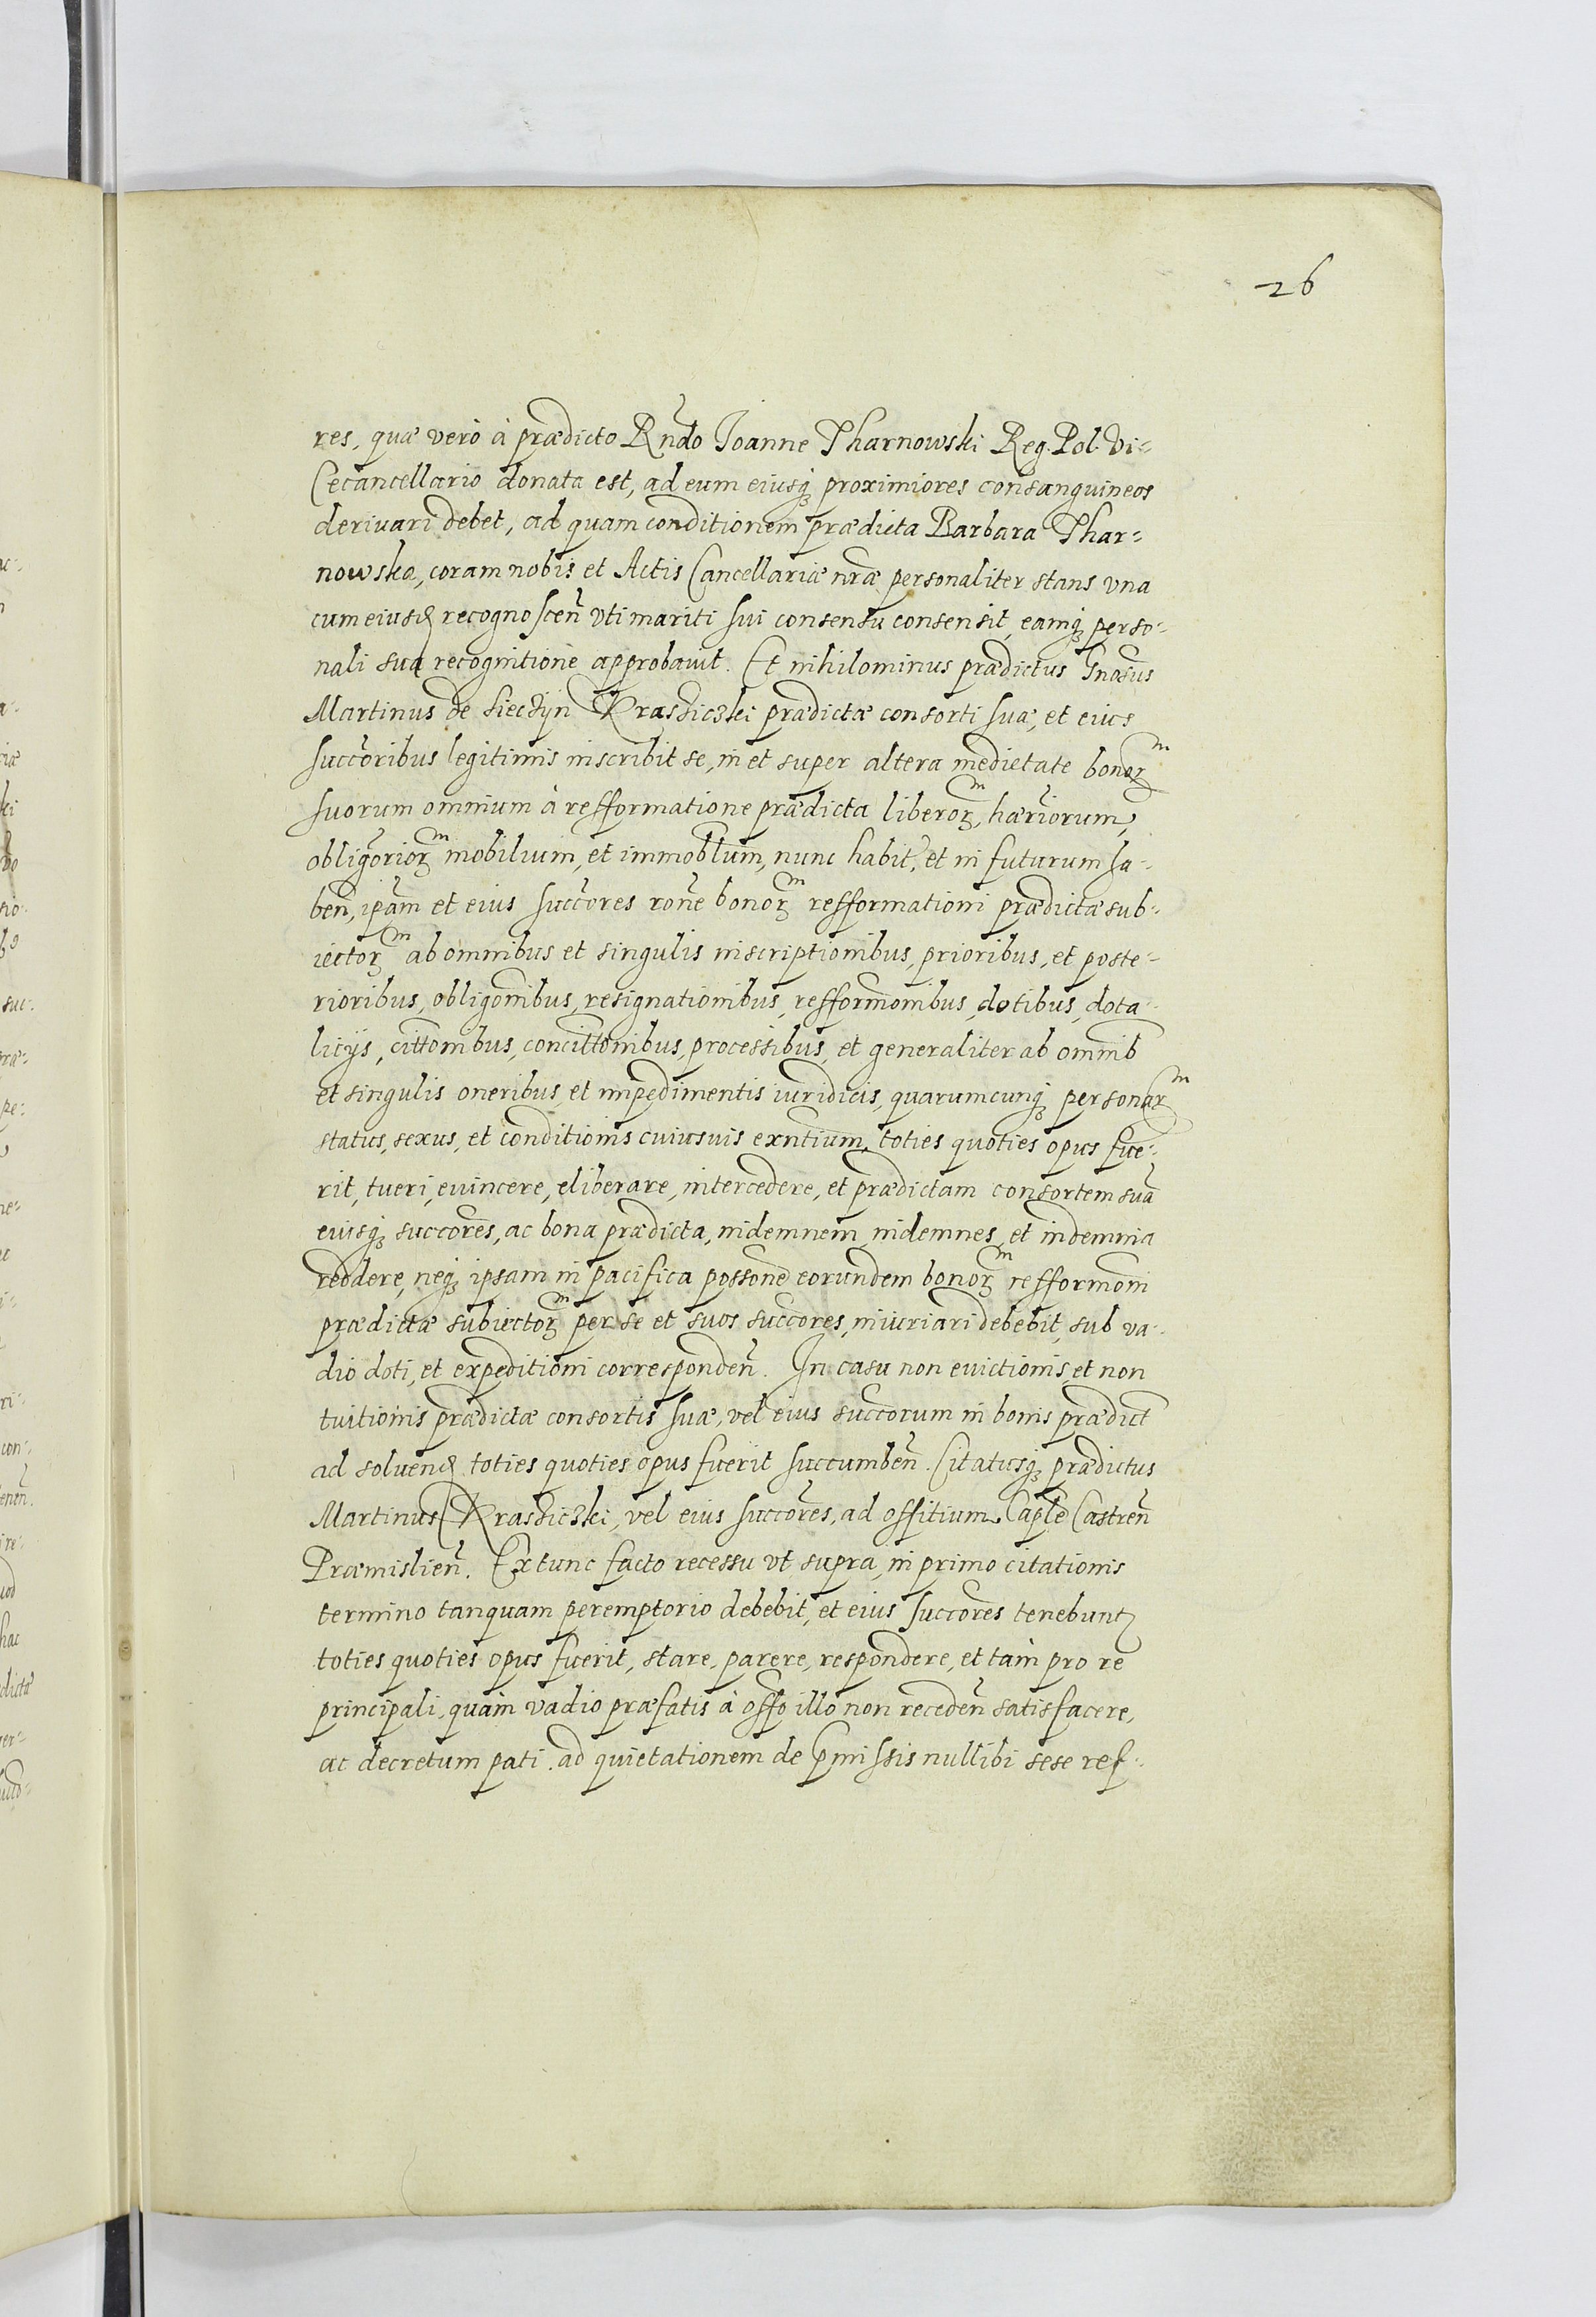 26
res, quæ verò à prædicto Rñdo Joanne Tharnowski Reg. Pol. Vi-
Cecancellario donata est, ad eum eiusq; proximiores consanguineos
deriuari debet, ad quam conditionem prædicta Barbara Thar-
nowska, coram nobis et Actis Cancellariæ nræ personaliter stans vna
cum eiusd recognoscen̄ vti mariti sui consensu consensit, eamq; perso-
nali sua recognitione approbauit. Et nihilominus prædictus Gnosus
Martinus de Siecziin Krassiczki prædictæ consorti suæ, et eius
succoribus legitimis inscribit se, in et super altera medietate bonorꝫ
suorum omnium à refformatione prædicta liberorꝫ, hæriorum,
obligoriorꝫ mobilium, et immoblium, nunc habit, et in futurum ha-
ben̄, ipam et eius succores rone bonorꝫ refformationi prædictæ sub-
iectorꝫ ab omnibus et singulis inscriptionibus, prioribus, et poste-
rioribus, obligonibus, resignationibus, refformonibus, dotibus, dota-
litijs, cittonibus, concittonibus, processibus, et generaliter ab omnib
et singulis oneribus, et impedimentis iuridicis, quarumcunq; personarꝫ
status, sexus, et conditionis cuiusuis exntium, toties quoties opus fue-
rit, tueri, euincere, eliberare, intercedere, et prædictam consortem suā
eiusq; succores, ac bona prædicta, indemnem, indemnes, et indemnia
reddere, neq; ipsam in pacifica possone eorundem bonorꝫ refformoni
prædictæ subiectorꝫ per se et suos succores, iniuriari debebit, sub va-
dio doti, et expeditioni responden̄. In casu non euictionis, et non
tuitionis prædictæ consortis suæ, vel eius succorum in bonis prædict
ad soluend toties quoties opus fuerit succumben̄. Citatusq; prædictus
Martinus Krassiczki, vel eius succores, ad offitium Caple Castren̄
Præmislien̄. Ex tunc facto recessu vt supra, in primo citationis
termino tanquam peremptorio debebit, et eius succores tenebunt
toties quoties opus fuerit, stare, parere, respondere, et tàm pro re
principali, quàm vadio præfatis à offo illo non receden̄ satisfacere,
ac decretum pati. ad quietationem de pmissis nullibi sese ref-